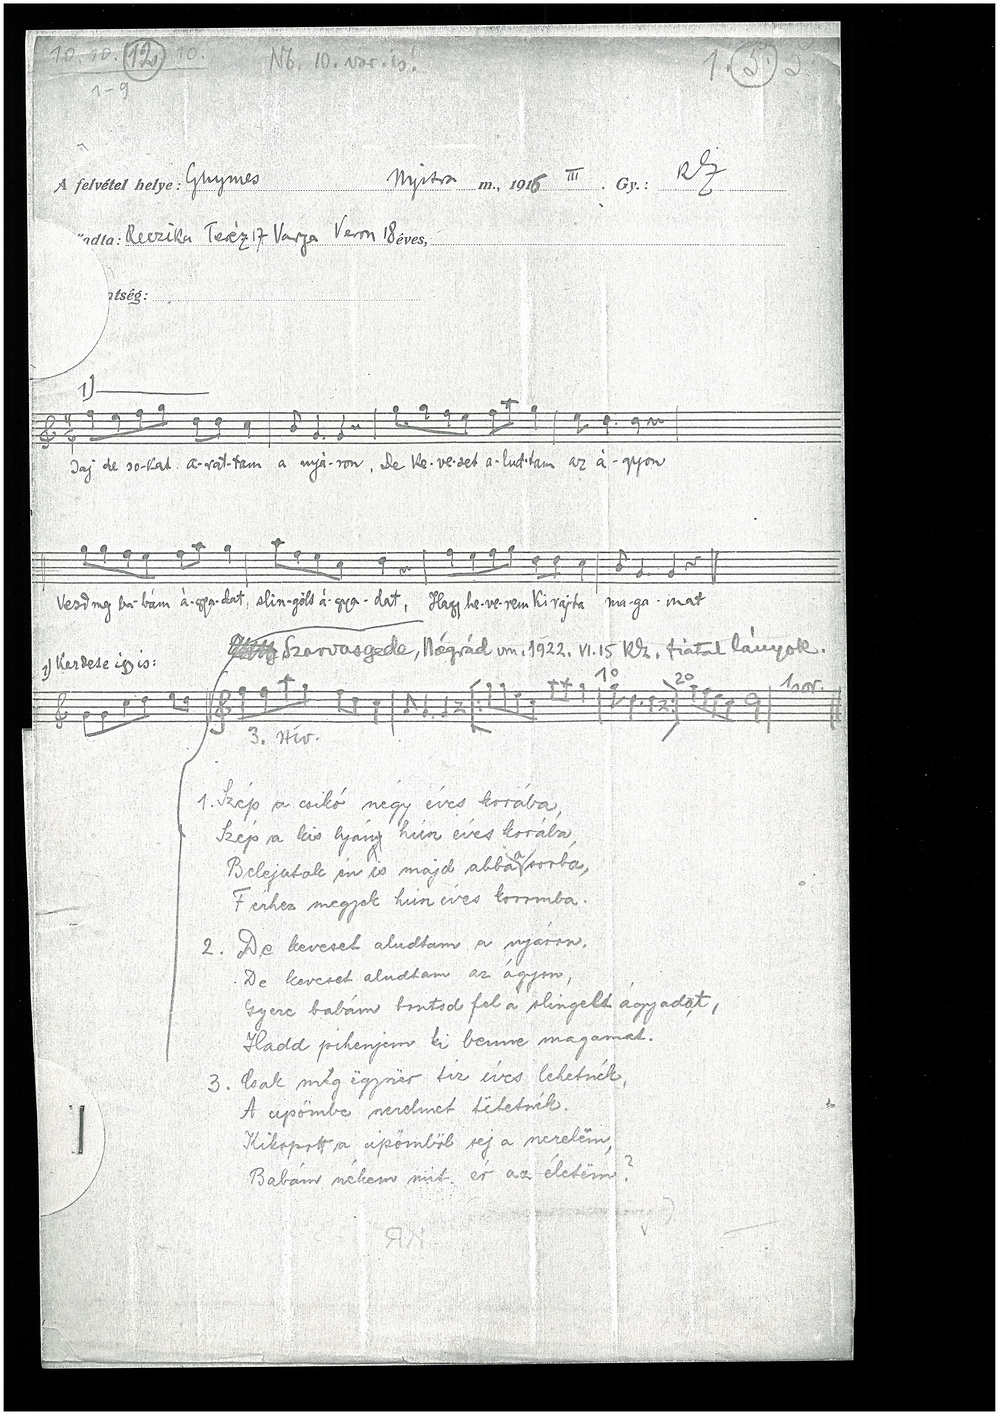 10. 10. 12. 10. Nb. 10. var. is! 1. 5. 5.
1-9
A felvétel helye: Ghymes Nyitra m., 1916 III. Gy.: KZ
adta: Reczika Teréz 17 Varga Veron 18 éves,
ntség:
1)
Jaj de so-kat a-rat-tam a nyá-ron, De ke-ve-set a-lud-tam az á-gyon
Vesd meg ba-bám á-gya-dat, slin-gölt á-gya-dat, Hagy he-ve-rem ki rajta ma-ga-mat
Szarvasgede, Nógrád vm. 1922. VI. 15 KZ. fiatal lányok.
1) Kezdése így is:
1º 2º 1 sor.
3. hív.
1. Szép a csikó négy éves korába,
Szép a kis lyány hún éves korába,
Belejutok én is majd abba a sorba,
Férhez megyek hún éves koromba.
2. De keveset aludtam a nyáron,
De keveset aludtam az ágyon,
Gyere babám bontsd fel a slingelt ágyadat,
Hadd pihenjem ki benne magamat.
3. Csak még ëgyszër tíz éves lehetnék,
A cipömbe szerelmet tëhetnék.
Kikopott a cipömböl sej a szerelëm,
Babám nékem mit ér az életëm?